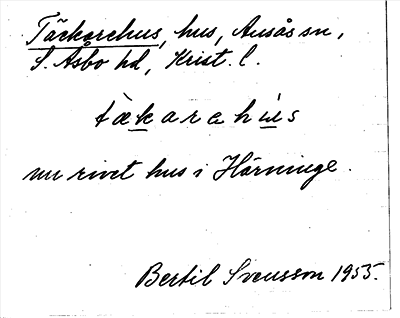 Täckarehus, hus, Ausås sn,
S. Åsbo hd, Krist. l.
tækarahus
nu rivet hus i Härninge.
Bertil Svensson 1955.